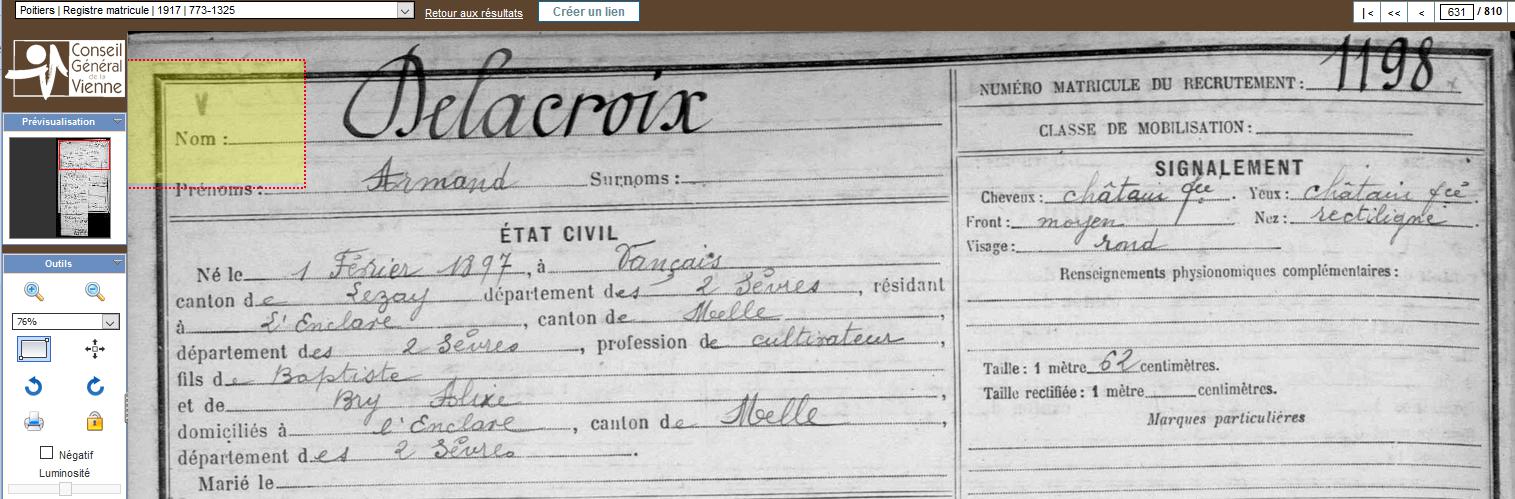 Poitiers | Registre matricule | 1917 | 773-1325
Retour aux résultats
Créer un lien
|<
<<
<
631 / 810
Conseil
Général
de la
Vienne
Prévisualisation
Outils
76%
Négatif
Luminosité
V
Nom : Delacroix
Prénoms : Armand Surnoms :
ÉTAT CIVIL
Né le 1 Février 1897, à Vançais
canton de Lezay département des 2 Sèvres, résidant
à L'Enclave, canton de Melle,
département des 2 Sèvres, profession de cultivateur,
fils de Baptiste
et de Bry Alixe,
domiciliés à l'Enclave, canton de Melle,
département des 2 Sèvres.
Marié le
NUMÉRO MATRICULE DU RECRUTEMENT : 1198
CLASSE DE MOBILISATION :
SIGNALEMENT
Cheveux : châtain fcé. Yeux : châtain fcé.
Front : moyen Nez : rectiligne.
Visage : rond
Renseignements physionomiques complémentaires :
Taille : 1 mètre 62 centimètres.
Taille rectifiée : 1 mètre centimètres.
Marques particulières